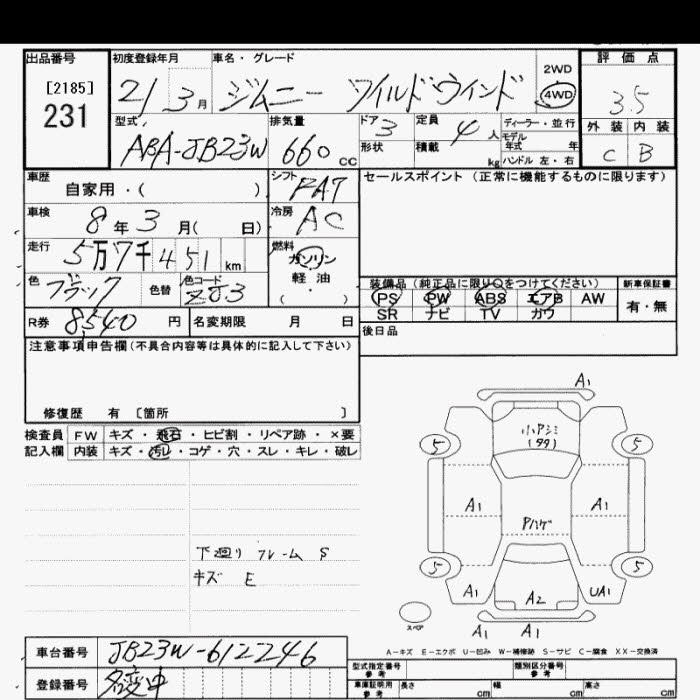 出品番号
[2185]
231
初度登録年月
21 3月
車名・グレード
ジムニー ワイルドウインド
2WD
4WD
評価点
3.5
外装 内装
C B
型式
ABA-JB23W
排気量
660 cc
ドア 3
形状
定員 4 人
積載 kg
ディーラー・並行
モデル
年式 年
ハンドル 左・右
車歴
自家用・( )
シフト
FAT
セールスポイント (正常に機能するものに限ります)
車検
8年3月( 日)
冷房
AC
走行
5万7千451km
燃料
ガソリン
軽油
( ・ )
色
ブラック
色替
色コード
ZJ3
装備品 (純正品に限り○をつけてください)
PS PW ABS エアB AW
SR ナビ TV カワ
新車保証書
有・無
R券
8,540 円
名変期限 月 日
後日品
注意事項申告欄(不具合内容等は具体的に記入して下さい)
修復歴 有 [箇所 ]
検査員 FW キズ・飛石・ヒビ割・リペア跡・×要
記入欄 内装 キズ・汚レ・コゲ・穴・スレ・キレ・破レ
下廻り フレーム S
キズ E
A1
小アシミ
(タタ)
5 5
A1 A1
Pハゲ
5 5
A1 A2 UA1
スペア
A1 A1
A-キズ E-エクボ U-凹み W-補修跡 S-サビ C-腐食 XX-交換済
車台番号
JB23W-612246
登録番号
名変中
型式指定番号
参考
類別区分番号
参考
車庫証明用
参考
長さ cm
幅 cm
高さ cm